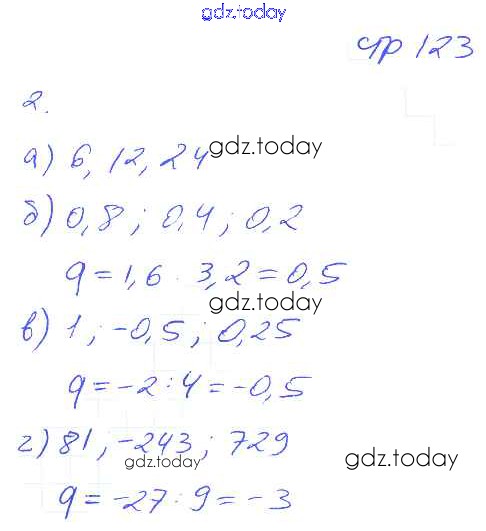 gdz.today
стр 123
2.
а) 6, 12, 24 gdz.today
б) 0,8 ; 0,4 ; 0,2
q = 1,6 : 3,2 = 0,5
gdz.today
в) 1 ; -0,5 ; 0,25
q = -2 : 4 = -0,5
г) 81 ; -243 ; 729
gdz.today gdz.today
q = -27 : 9 = -3